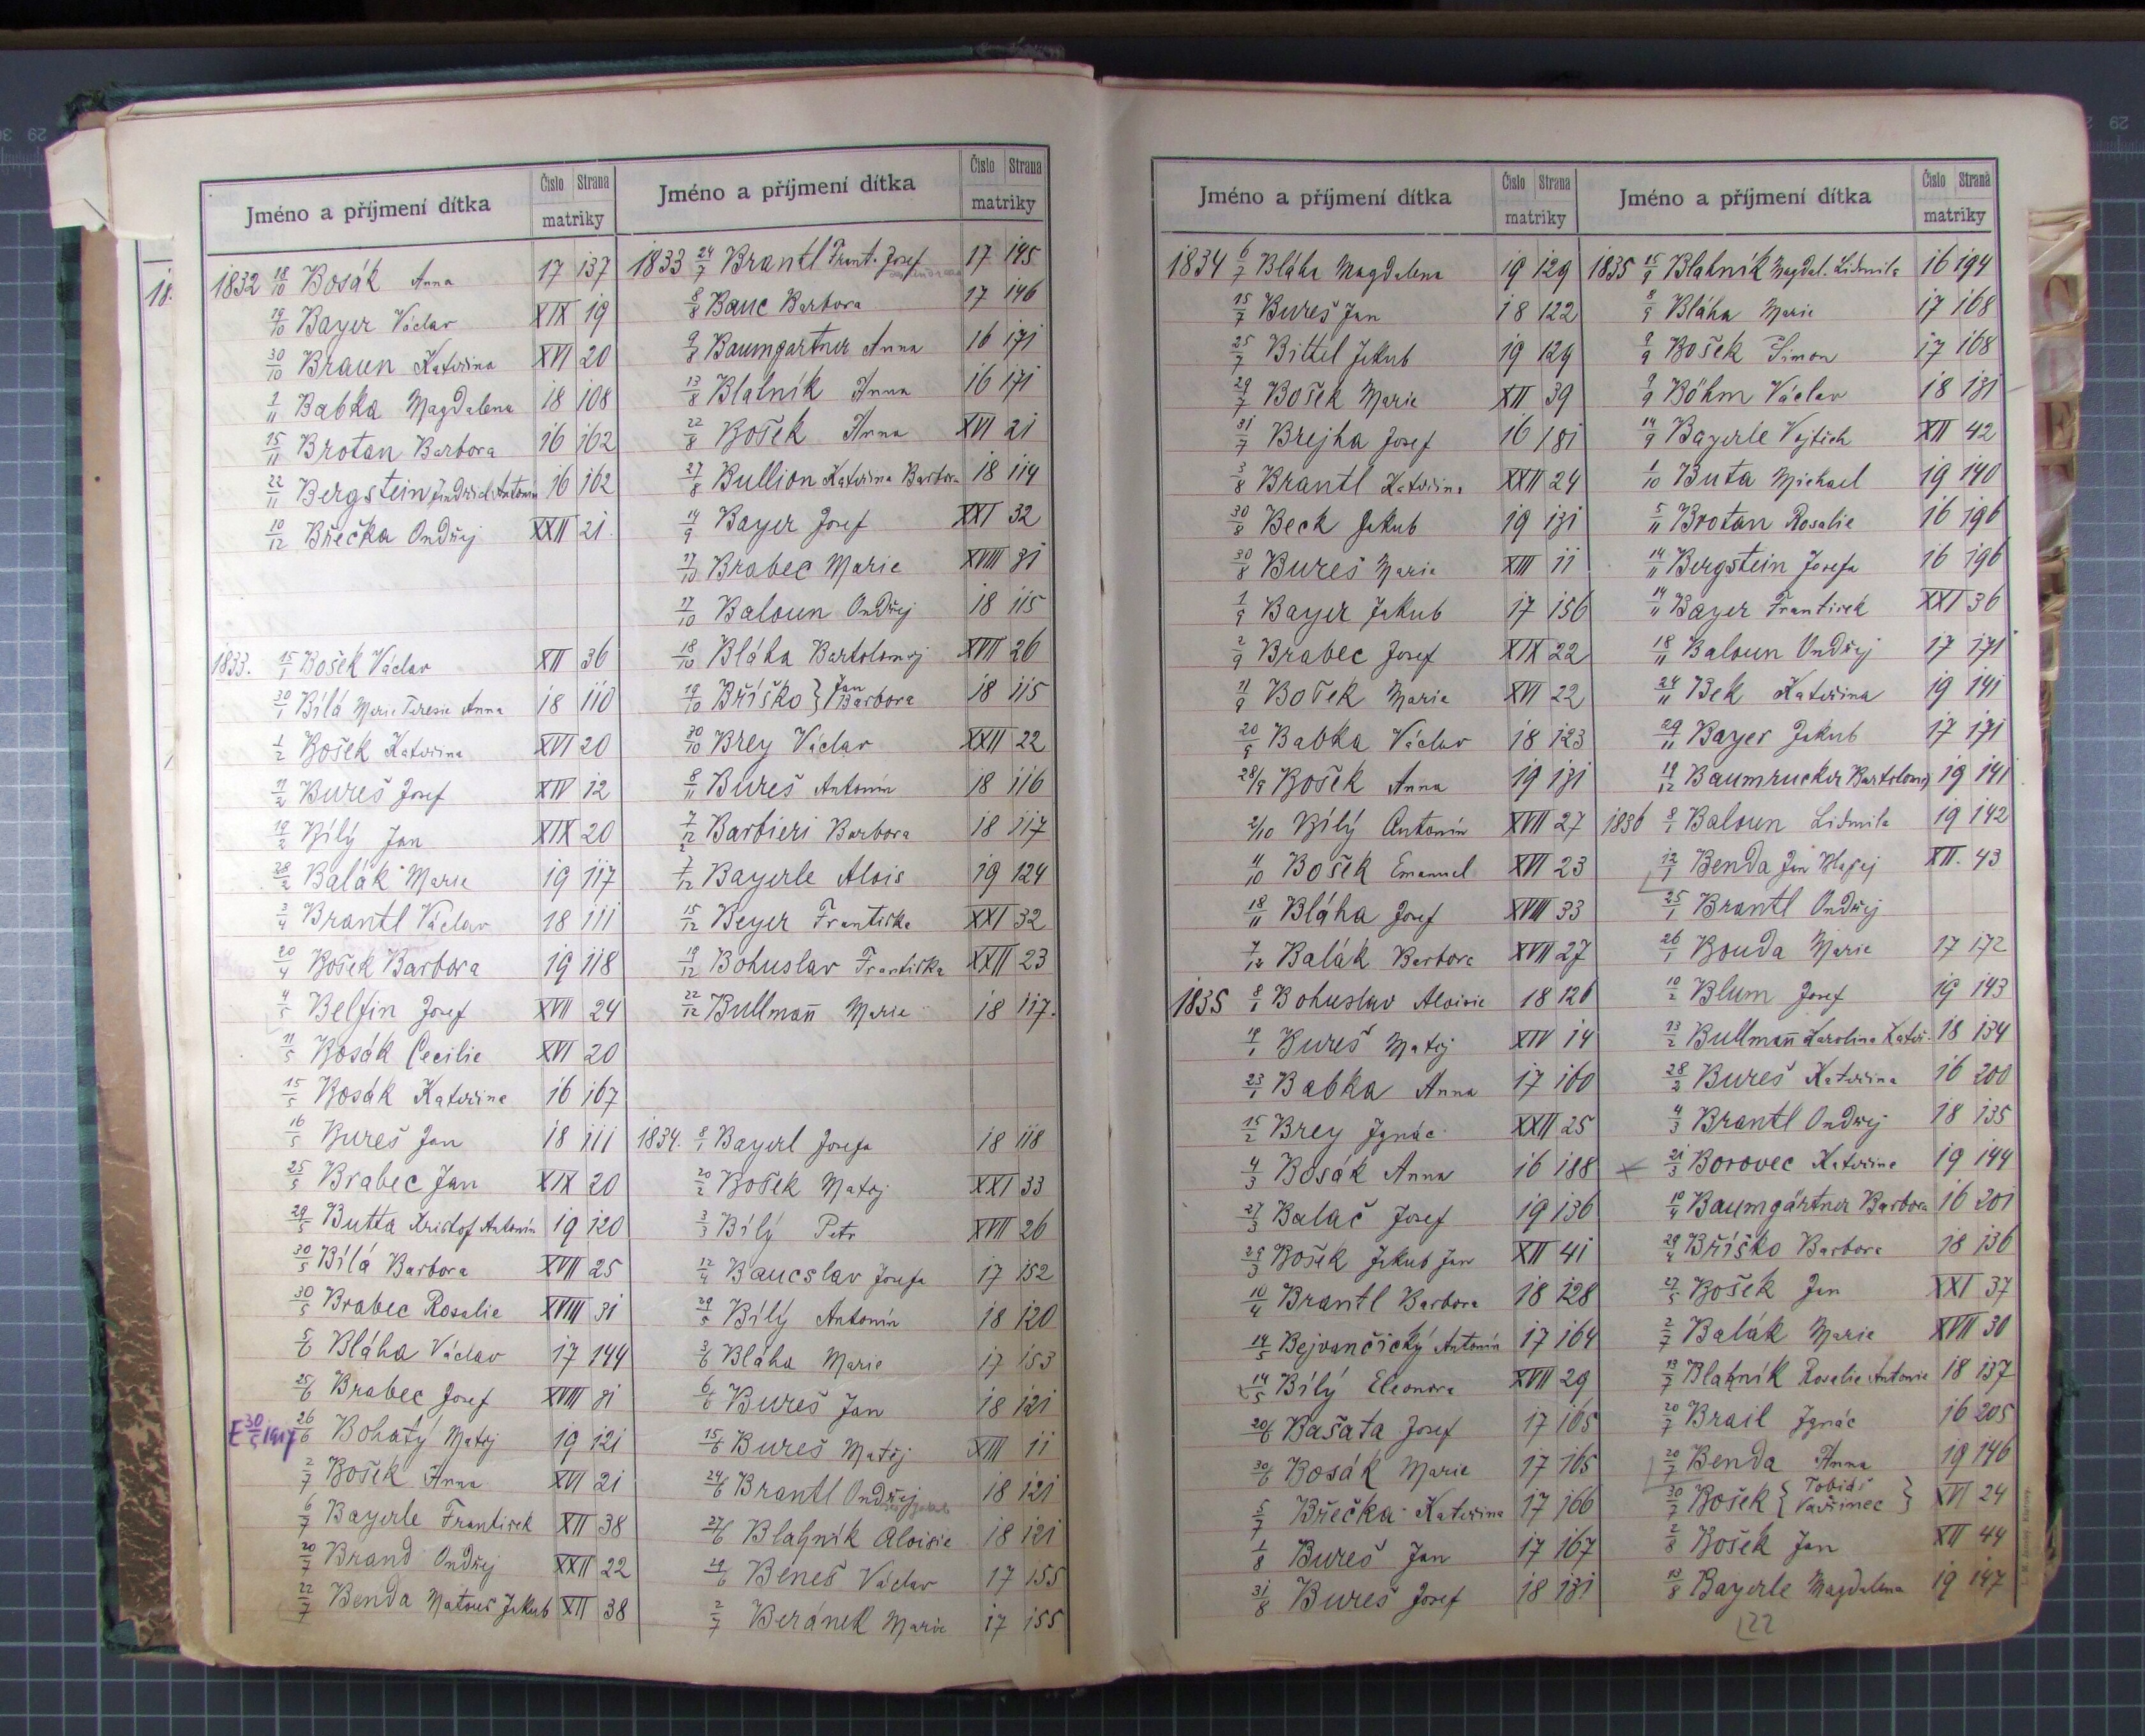 Jméno a příjmení dítka Číslo Strana matriky
1832 18/10 Bosák Anna 17 137
19/10 Bayer Václav XIX 19
30/10 Braun Kateřina XVI 20
1/11 Babka Magdalena 18 108
15/11 Brotan Barbora 16 162
22/11 Bergstein Jindřich Antonín 16 162
10/12 Břečka Ondřej XXII 21.
1833. 15/1 Bošek Václav XII 36
30/1 Bílá Marie Teresie Anna 18 110
1/2 Bošek Kateřina XVI 20
11/2 Bureš Josef XIV 12
19/2 Bílý Jan XIX 20
28/2 Balák Marie 19 117
3/4 Brantl Václav 18 111
20/4 Bošek Barbora 19 118
4/5 Belfin Josef XVII 24
11/5 Bosák Cecilie XVI 20
15/5 Bosák Kateřina 16 167
16/5 Bureš Jan 18 111
25/5 Brabec Jan XIX 20
29/5 Butta Kristof Antonín 19 120
30/5 Bílá Barbora XVII 25
30/5 Brabec Rosalie XVIII 31
5/6 Bláha Václav 17 144
25/6 Brabec Josef XVIII 31
E 30/5 1917 26/6 Bohatý Matěj 19 121
2/7 Bošek Anna XVI 21
6/7 Bayerle Frantisek XII 38
20/7 Brand Ondřej XXII 22
22/7 Benda Matouš Jakub XII 38
Jméno a příjmení dítka Číslo Strana matriky
1833 24/7 Brantl Frant. Josef 17 145
8/8 Bauc Barbora 17 146
9/8 Baumgartner Anna 16 171
13/8 Blatník Anna 16 171
22/8 Bošek Anna XVI 21
27/8 Bullion Kateřina Barbora 18 114
14/9 Bayer Josef XXI 32
17/10 Brabec Marie XVIII 31
17/10 Baloun Ondřej 18 115
18/10 Bláha Bartoloměj XVII 26
19/10 Bříško } Jan Barbora 18 115
30/10 Brey Václav XXII 22
8/11 Bureš Antonín 18 116
7/12 Barbieri Barbora 18 117
7/12 Bayerle Alois 19 124
15/12 Beyer Františka XXI 32
19/12 Bohuslav Františka XXII 23
22/12 Bullman̄ Marie 18 117.
1834. 8/1 Bayerl Josefa 18 118
20/2 Bošek Matěj XXI 33
3/3 Bílý Petr XVII 26
12/4 Baucslav Josefa 17 152
29/5 Bílý Antonín 18 120
3/6 Bláha Marie 17 153
6/6 Bureš Jan 18 121
15/6 Bureš Matěj XIII 11
24/6 Brantl Ondřej 18 121
27/6 Blahník Aloisie 18 121
29/6 Beneš Václav 17 155
2/7 Beránek Marie 17 155
Jméno a příjmení dítka Číslo Strana matriky
1834 6/7 Bláha Magdalena 19 129
15/7 Bureš Jan 18 122
25/7 Bittel Jakub 19 129
29/7 Bošek Marie XII 39
31/7 Brejha Josef 16 181
3/8 Brantl Kateřina XXII 24
30/8 Beck Jakub 19 131
30/8 Bureš Marie XIII 11
1/9 Bayer Jakub 17 156
2/9 Brabec Josef XIX 22
11/9 Bošek Marie XVI 22
20/9 Babka Václav 18 123
28/9 Bošek Anna 19 131
2/10 Bílý Antonín XVII 27
11/10 Bošek Emanuel XVI 23
18/11 Bláha Josef XVIII 33
7/12 Balák Barbora XVII 27
1835 8/1 Bohuslav Aloisie 18 126
19/1 Bureš Matěj XIV 14
23/1 Babka Anna 17 160
15/2 Brey Ignác XXII 25
4/3 Bosák Anna 16 188
27/3 Balač Josef 19 136
29/3 Bošek Jakub Jan XII 41
10/4 Brantl Barbora 18 128
14/5 Bejvančický Antonín 17 164
14/5 Bílý Eleonora XVII 29
20/6 Bašata Josef 17 165
30/6 Bosák Marie 17 165
5/7 Břečka Kateřina 17 166
1/8 Bureš Jan 17 167
31/8 Bureš Josef 18 131
Jméno a příjmení dítka Číslo Strana matriky
1835 15/9 Blahník Magdal. Lidmila 16 194
8/9 Bláha Marie 17 168
9/9 Bošek Šimon 17 168
9/9 Böhm Václav 18 131
14/9 Bayerle Vojtěch XII 42
1/10 Buta Michael 19 140
5/11 Brotan Rosalie 16 196
14/11 Bergstein Josefa 16 196
14/11 Bayer Frantisek XXI 36
18/11 Baloun Ondřej 17 171
24/11 Bek Kateřina 19 141
29/11 Bayer Jakub 17 171
19/12 Baumrucker Bartoloměj 19 141
1836 8/1 Baloun Lidmila 19 142
12/1 Benda Jan Blažej XII. 43
25/1 Brantl Ondřej
26/1 Bouda Marie 17 172
10/2 Blum Josef 19 143
13/2 Bullman̄ Karolina Kateř. 18 134
28/2 Bureš Kateřina 16 200
4/3 Brantl Ondřej 18 135
21/3 Borovec Kateřina 19 144
10/4 Baumgärtner Barbora 16 201
29/4 Bříško Barbora 18 136
27/5 Bošek Jan XXI 37
2/7 Balák Marie XVII 30
13/7 Blahník Rosalie Antonie 18 137
20/7 Brail Ignác 16 205
20/7 Benda Anna 19 146
30/7 Bošek { Tobiáš Vavřinec } XVI 24
2/8 Bošek Jan XII 44
13/8 Bayerle Magdalena 19 147
122